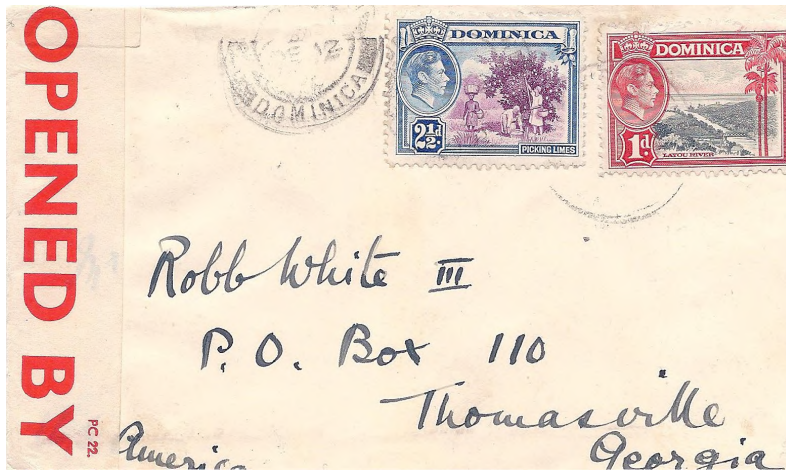 OPENED BY
PC 22.
DOMINICA
DOMINICA
2½d.
PICKING LIMES
DOMINICA
1d.
LAYOU RIVER
Robb White III
P. O. Box 110
Thomasville
Georgia
America